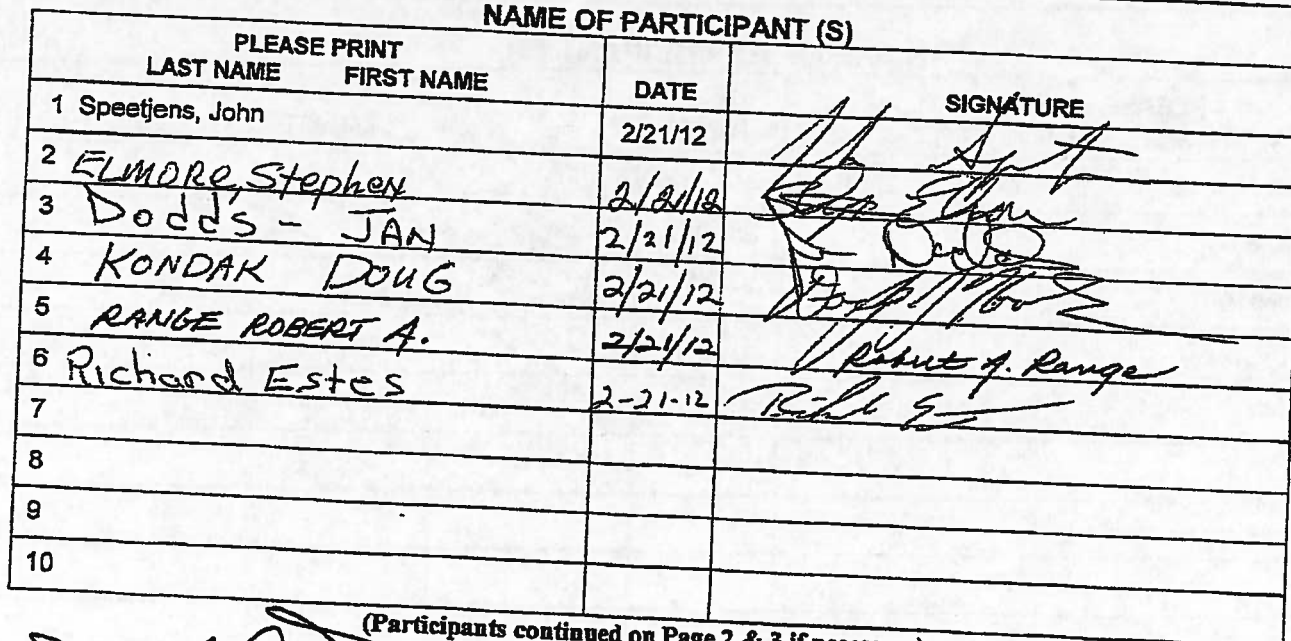 NAME OF PARTICIPANT (S)
PLEASE PRINT
LAST NAME FIRST NAME DATE SIGNATURE
1 Speetjens, John 2/21/12
2 ELMORE, Stephen 2/21/12
3 Dodds - JAN 2/21/12
4 KONDAK DOUG 2/21/12
5 RANGE ROBERT A. 2/21/12 Robert A. Range
6 Richard Estes 2-21-12
7
8
9
10
(Participants continued on Page 2 & 3 if necessary)